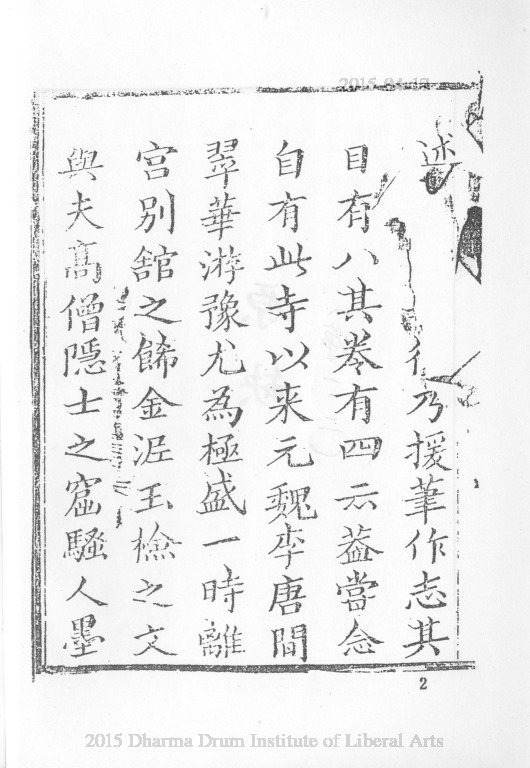 2015-04-17
述 乃援筆作志其
目有八其卷有四云葢當念
自有此寺以来元魏李唐間
翠華游豫尤為極盛一時離
宮别舘之餙金泥玉檢之文
與夫髙僧隱士之窟騷人墨
2
2015 Dharma Drum Institute of Liberal Arts